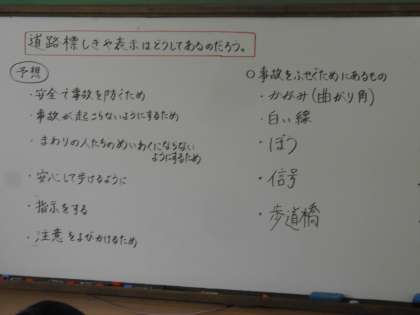 道路標しきや表示はどうしてあるのだろう。
予想
・安全で事故を防ぐため
・事故が起こらないようにするため
・まわりの人たちのめいわくにならない
ようにするため
・安心して歩けるように
・指示をする
・注意をよびかけるため
○事故をふせぐためにあるもの
・かがみ(曲がり角)
・白い線
・ぼう
・信号
・歩道橋